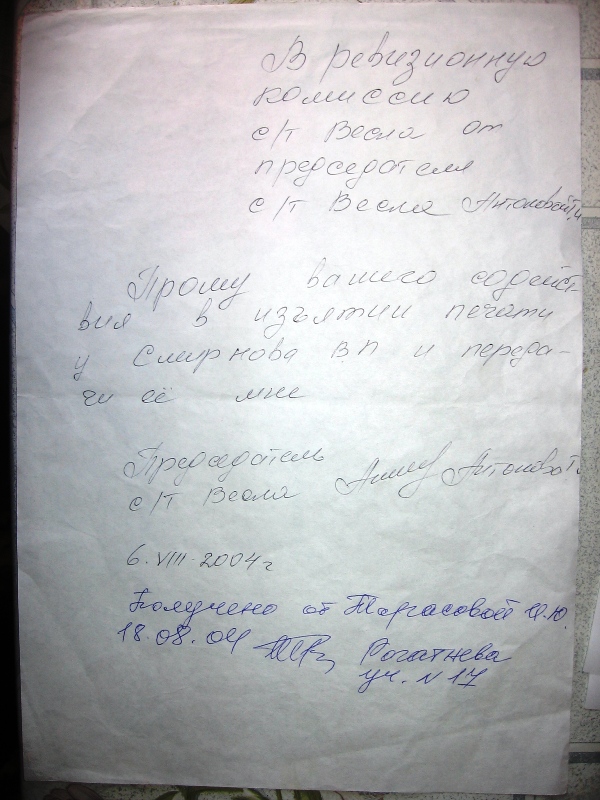 В ревизионную
комиссию
с/т Весла от
председателя
с/т Весла Антоновой Т.
Прошу вашего содейст
вия в изъятии печати
у Смирнова В.П и переда-
чи её мне
Председатель
с/т Весла Антонова Т.
6.VIII-2004г
Получено от Тарасовой И.Ю.
18.08.04 Рогатнева
уч. N 17